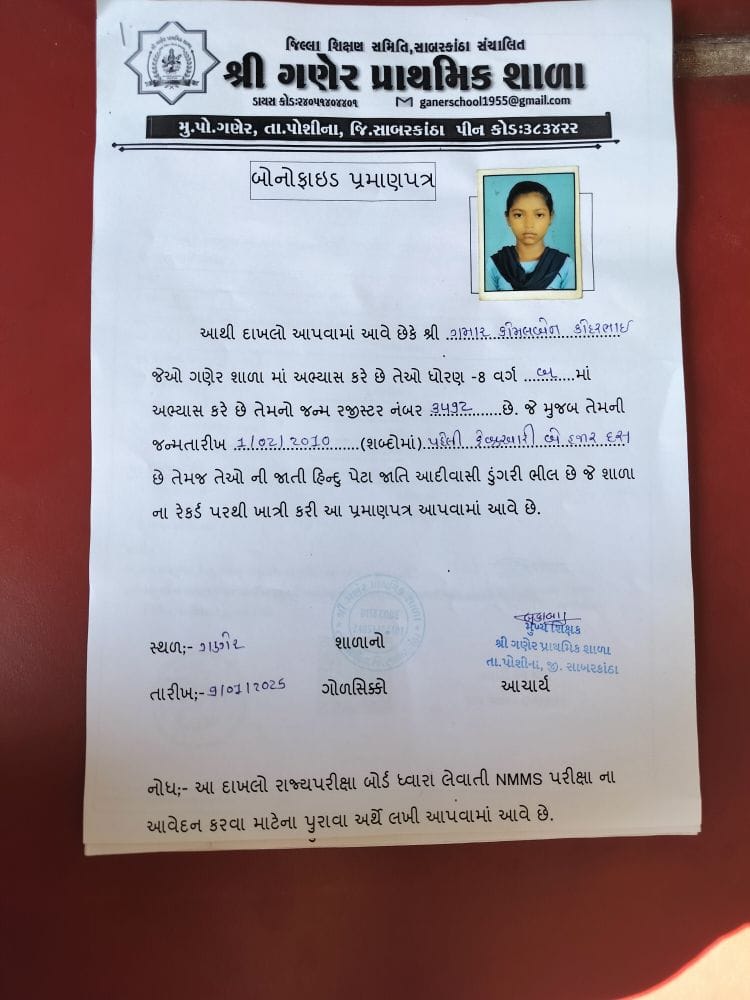 જિલ્લા શિક્ષણ સમિતિ,સાબરકાંઠા સંચાલિત
શ્રી ગણેર પ્રાથમિક શાળા
ડાયસ કોડ:૨૪૦૫૧૪૦૪૪૦૧ ganerschool1955@gmail.com
મુ.પો.ગણેર, તા.પોશીના, જિ.સાબરકાંઠા પીન કોડ:૩૮૩૪૨૨
બોનોફાઇડ પ્રમાણપત્ર
આથી દાખલો આપવામાં આવે છેકે શ્રી ગમાર
જેઓ ગણેર શાળા માં અભ્યાસ કરે છે તેઓ ધોરણ -8 વર્ગ બ માં
અભ્યાસ કરે છે તેમનો જન્મ રજીસ્ટર નંબર છે. જે મુજબ તેમની
જન્મતારીખ 1/02/2010 (શબ્દોમાં) પહેલી ફેબ્રુઆરી બે હજાર દસ
છે તેમજ તેઓ ની જાતી હિન્દુ પેટા જાતિ આદીવાસી ડુંગરી ભીલ છે જે શાળા
ના રેકર્ડ પરથી ખાત્રી કરી આ પ્રમાણપત્ર આપવામાં આવે છે.
મુખ્ય શિક્ષક
સ્થળ;- ગણેર શાળાનો શ્રી ગણેર પ્રાથમિક શાળા
તા.પોશીના, જી. સાબરકાંઠા
તારીખ;- ગોળસિક્કો આચાર્ય
નોધ;- આ દાખલો રાજ્યપરીક્ષા બોર્ડ ધ્વારા લેવાતી NMMS પરીક્ષા ના
આવેદન કરવા માટેના પુરાવા અર્થે લખી આપવામાં આવે છે.